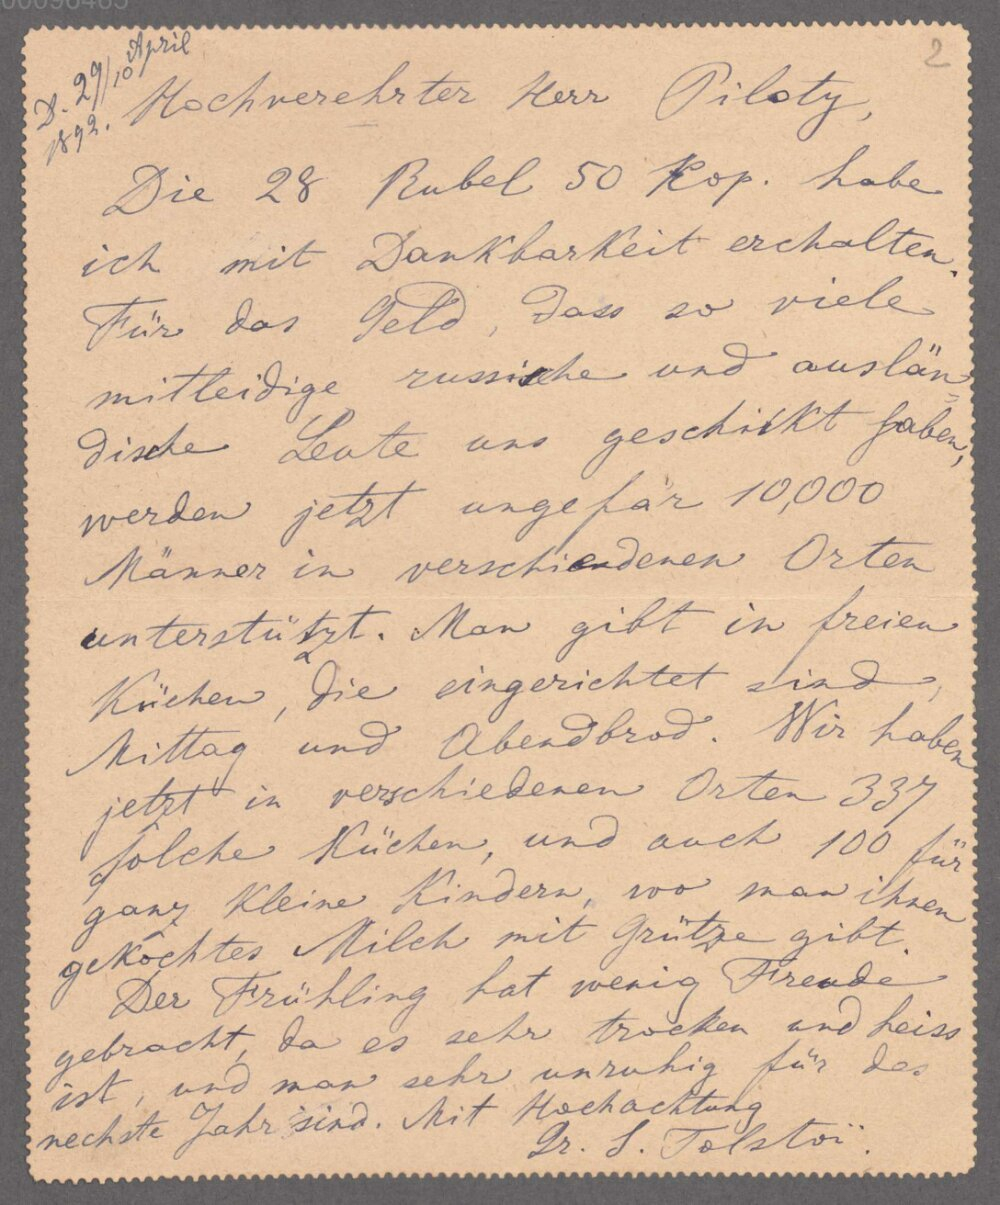 D. 29/10 April
1892.
2
Hochverehrter Herr Piloty,
Die 28 Rubel 50 Kop. habe
ich mit Dankbarkeit erchalten.
Für das Geld, dass so viele
mitleidige russische und auslän-
dische Leute uns geschikt haben,
werden jetzt ungefär 10,000
Männer in verschiendenen Orten
unterstützt. Man gibt in freien
Küchen, die eingerichtet sind,
Mittag und Abendbrod. Wir haben
jetzt in verschiedenen Orten 337
solche Küchen, und auch 100 für
ganz kleine Kindern, wo man ihnen
gekochtes Milch mit Grütze gibt.
Der Frühling hat wenig Freude
gebracht, da es sehr trocken und heiss
ist, und man sehr unruhig für das
nechste Jahr sind. Mit Hochachtung
Gr. S. Tolstoï.